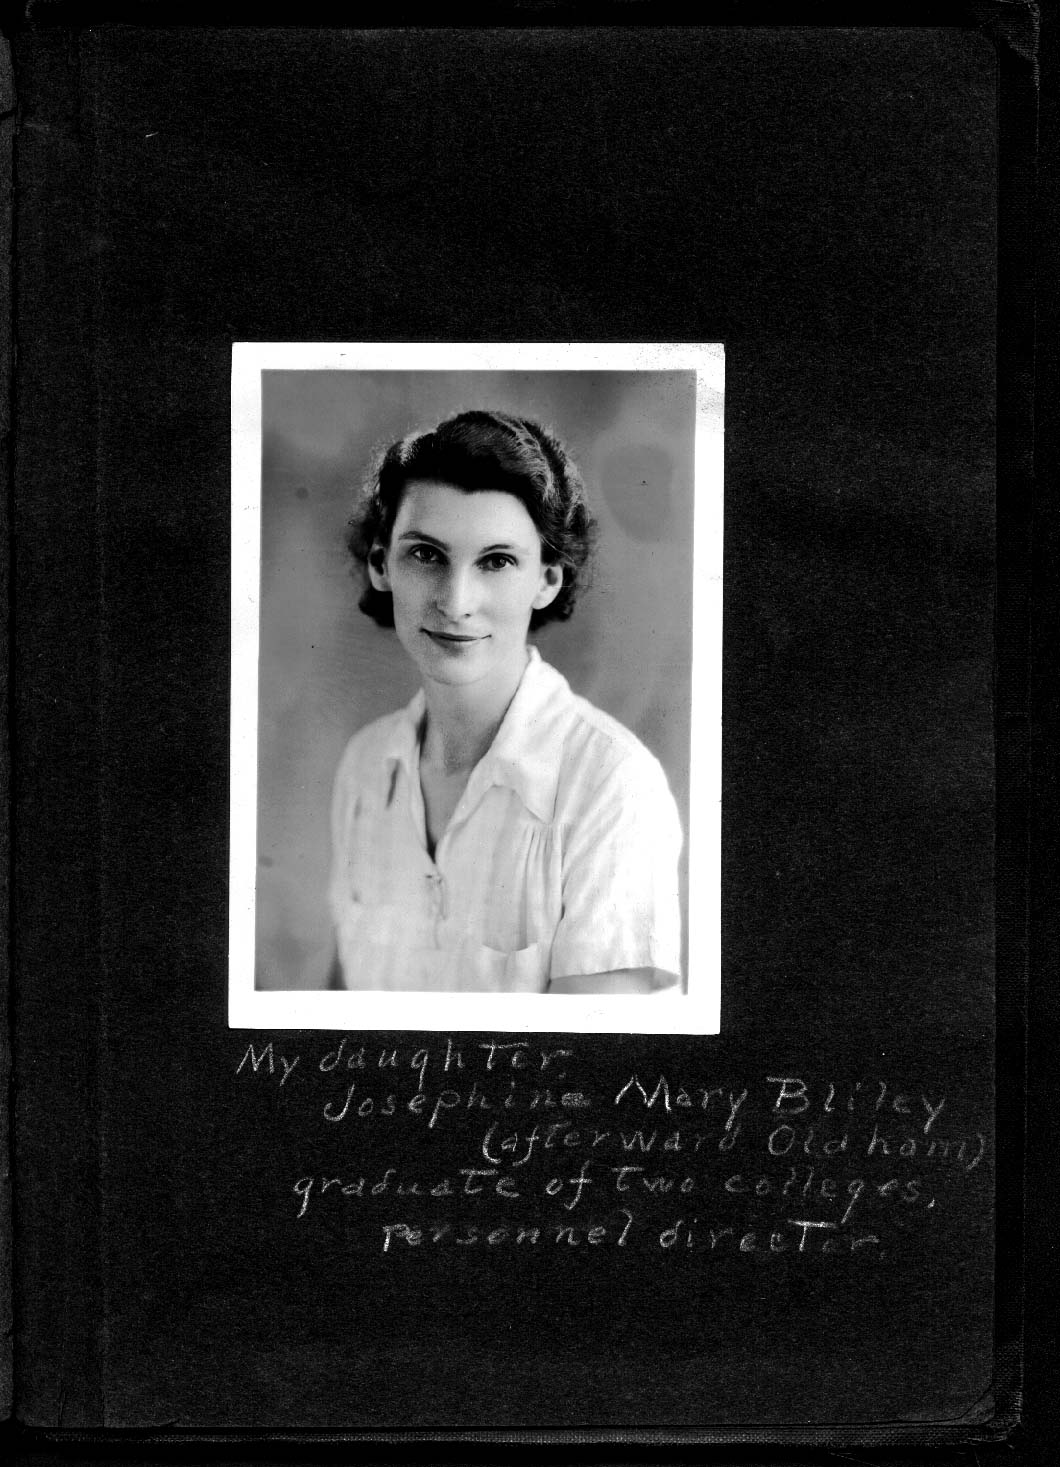 My daughter.
Josephine Mary Bliley
(afterward Oldham)
graduate of two colleges,
personnel director.